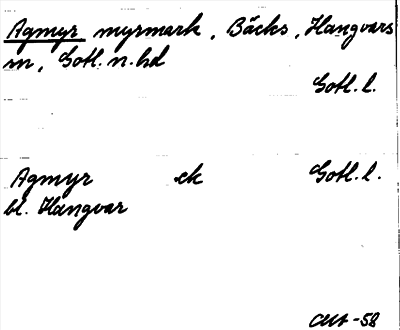 Agmyr myrmark, Bäcks, Hangvars
sn, Gotl. n. hd
Gotl. l.
Agmyr ek Gotl. l.
bl. Hangvar
-58